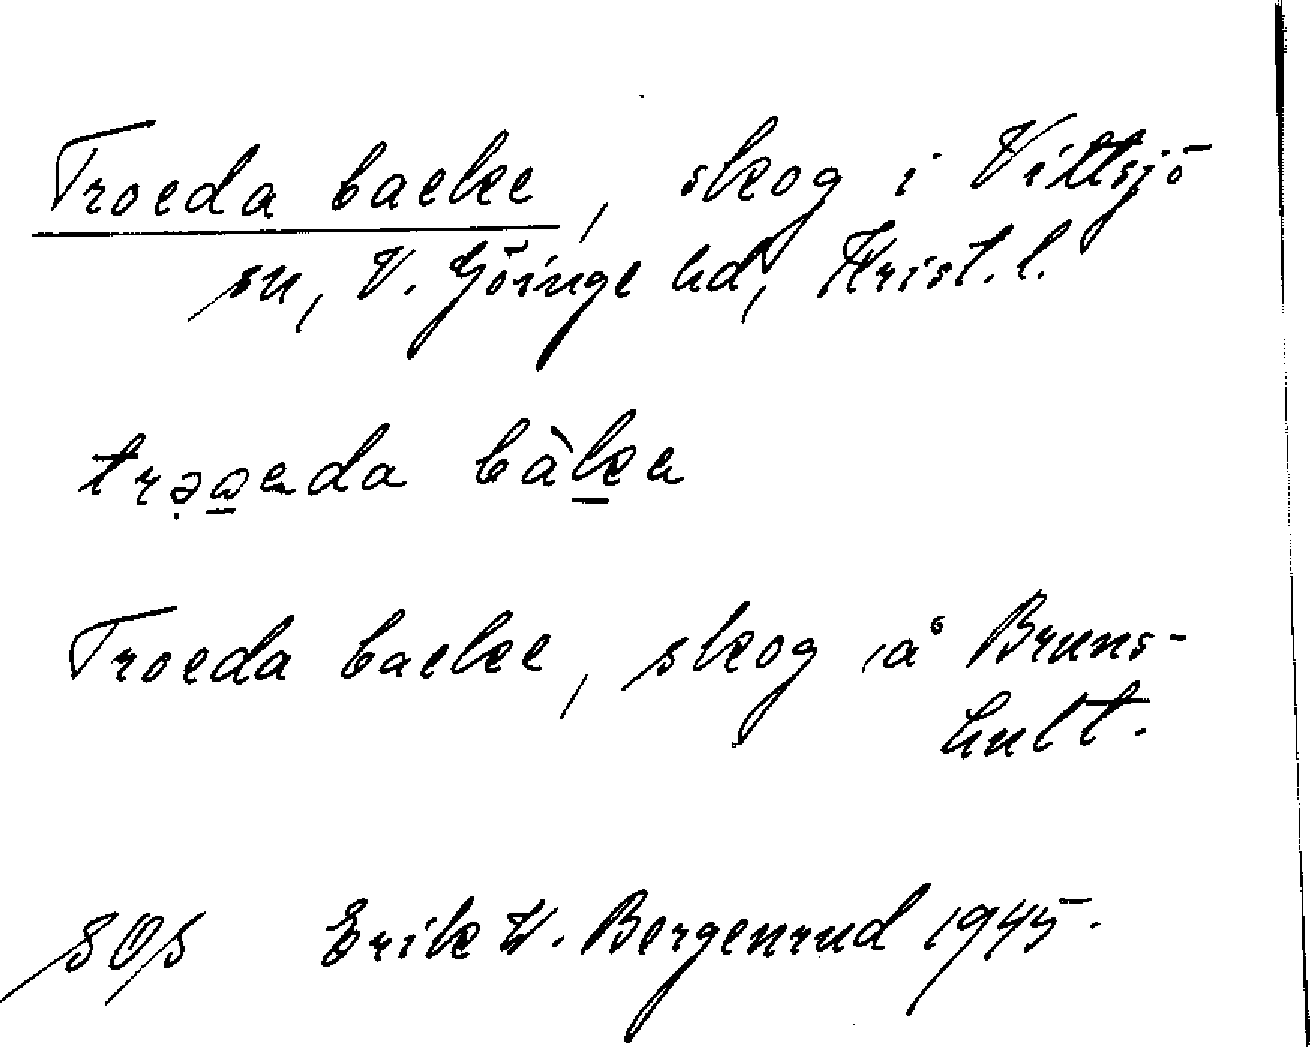 Troeda backe, skog i Vittsjö
sn, V. Göinge hd, Krist. l.
Troeda backe, skog å Bruns-
hult.
Erik W. Bergenrud 1945.